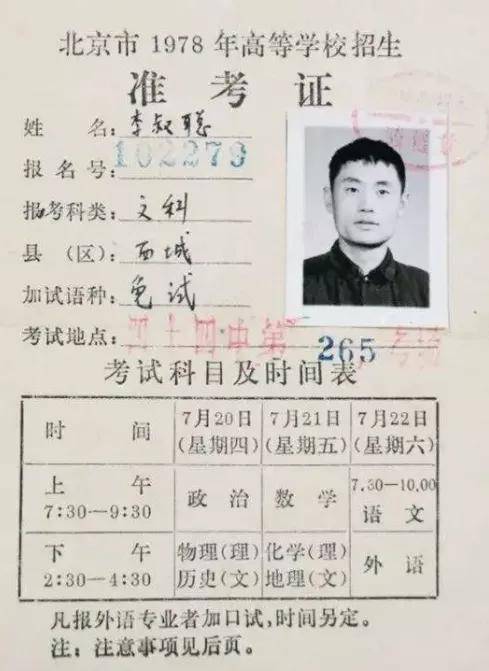 北京市 1978 年高等学校招生
准考证
姓 名: 李叔聪
报 名 号: 102279
报考科类: 文科
县 (区): 西城
加试语种: 免试
考试地点: 四十四中第 265 考场
考试科目及时间表
时 间 7月20日(星期四) 7月21日(星期五) 7月22日(星期六)
上 午 7:30—9:30 政 治 数 学 7.30—10.00 语 文
下 午 2:30—4:30 物理(理) 历史(文) 化学(理) 地理(文) 外 语
凡报外语专业者加口试,时间另定。
注: 注意事项见后页。